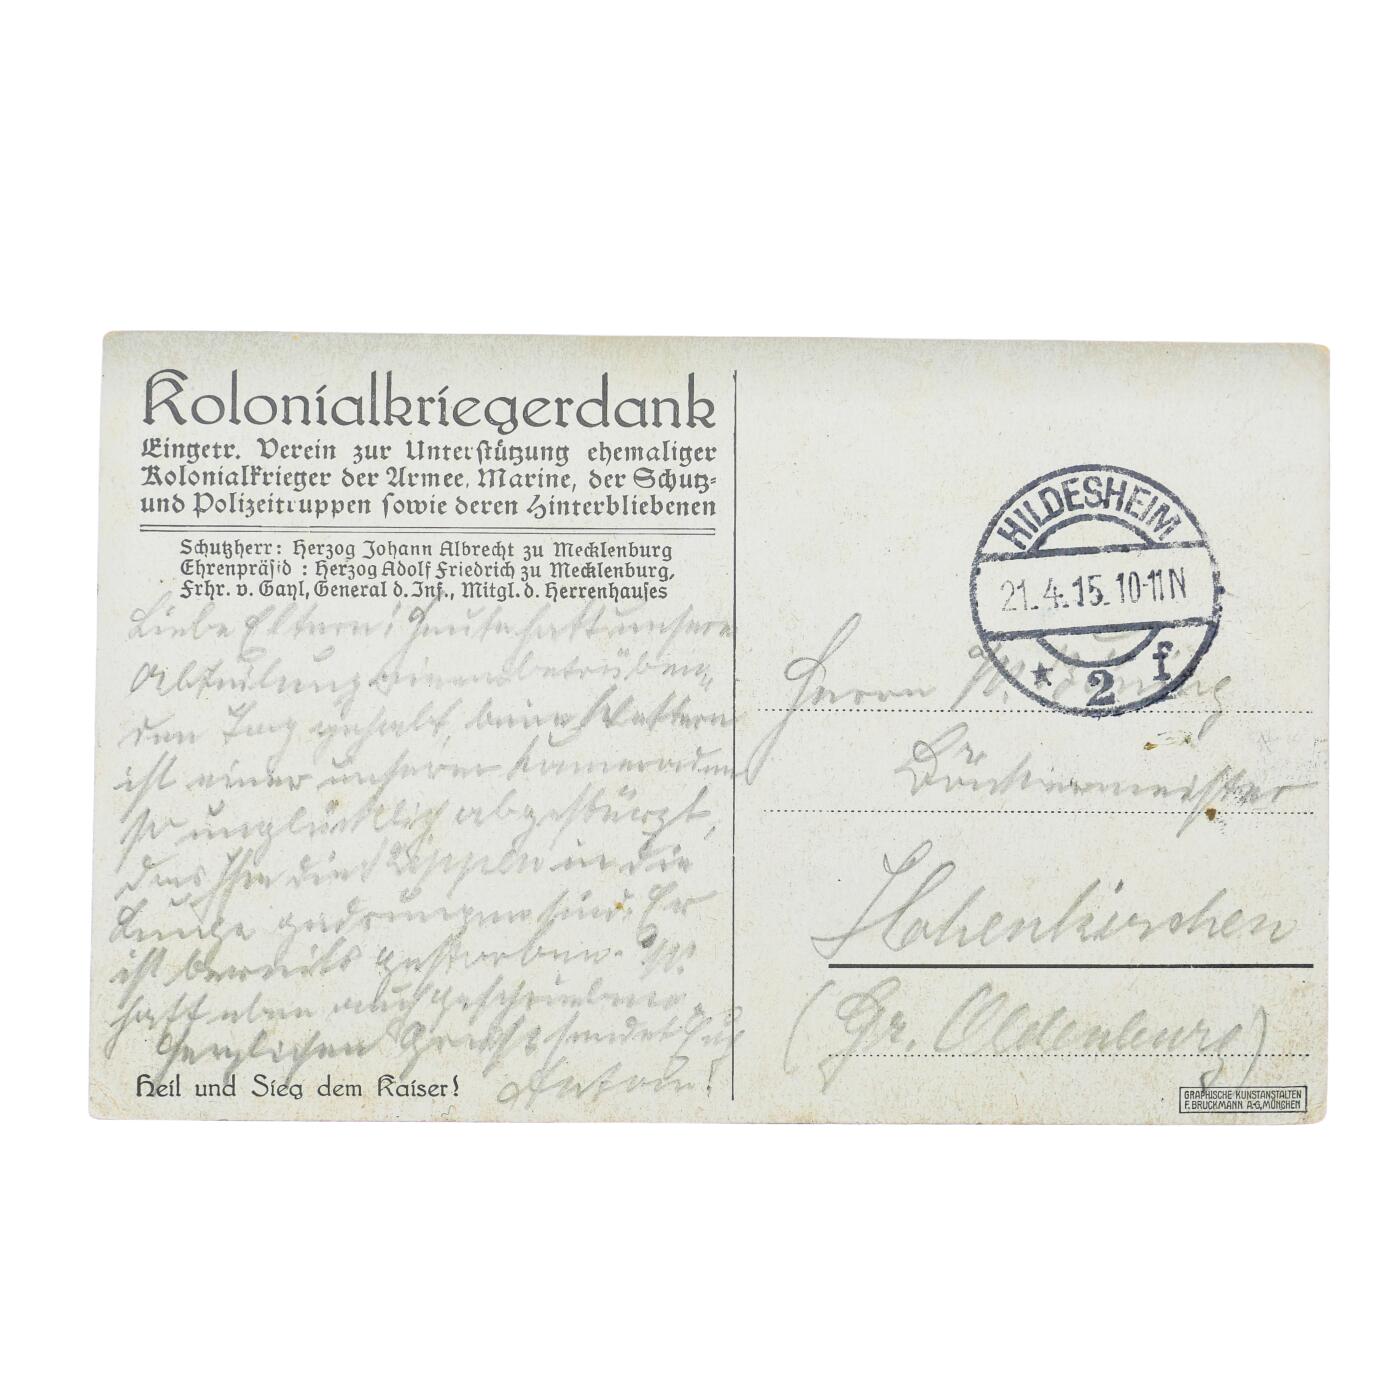 Kolonialkriegerdank
Eingetr. Verein zur Unterstützung ehemaliger
Kolonialkrieger der Armee, Marine, der Schutz=
und Polizeitruppen sowie deren Hinterbliebenen
Schutzherr: Herzog Johann Albrecht zu Mecklenburg
Ehrenpräsid: Herzog Adolf Friedrich zu Mecklenburg,
Frhr. v. Gayl, General d. Inf., Mitgl. d. Herrenhauses
Liebe Eltern! Heute hatt unsere
Abteilung einen betrüben-
den Tag gehabt, beim Klettern
ist einer unserer Kameraden
so unglücklich abgestürzt,
das Ihm die Rippen in die
Lunge gedrungen sind. Er
ist bereits gestorben.
hatt eben auch geschrieben.
Herzlichen Gruß sendet Euch
Anton!
Heil und Sieg dem Kaiser!
HILDESHEIM
21.4.15.10-11N
* 2 f
Herrn
Böttchermeister
Hohenkirchen
(Gr. Oldenburg)
GRAPHISCHE KUNSTANSTALTEN
F. BRUCKMANN A-G, MÜNCHEN